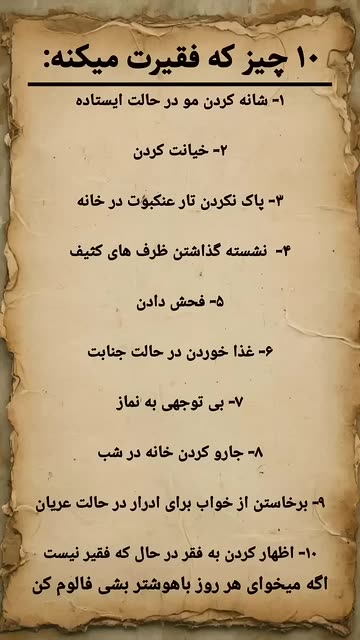 ۱۰ چیز که فقیرت میکنه:
۱- شانه کردن مو در حالت ایستاده
۲- خیانت کردن
۳- پاک نکردن تار عنکبوت در خانه
۴- نشسته گذاشتن ظرف های کثیف
۵- فحش دادن
۶- غذا خوردن در حالت جنابت
۷- بی توجهی به نماز
۸- جارو کردن خانه در شب
۹- برخاستن از خواب برای ادرار در حالت عریان
۱۰- اظهار کردن به فقر در حال که فقیر نیست
اگه میخوای هر روز باهوشتر بشی فالوم کن